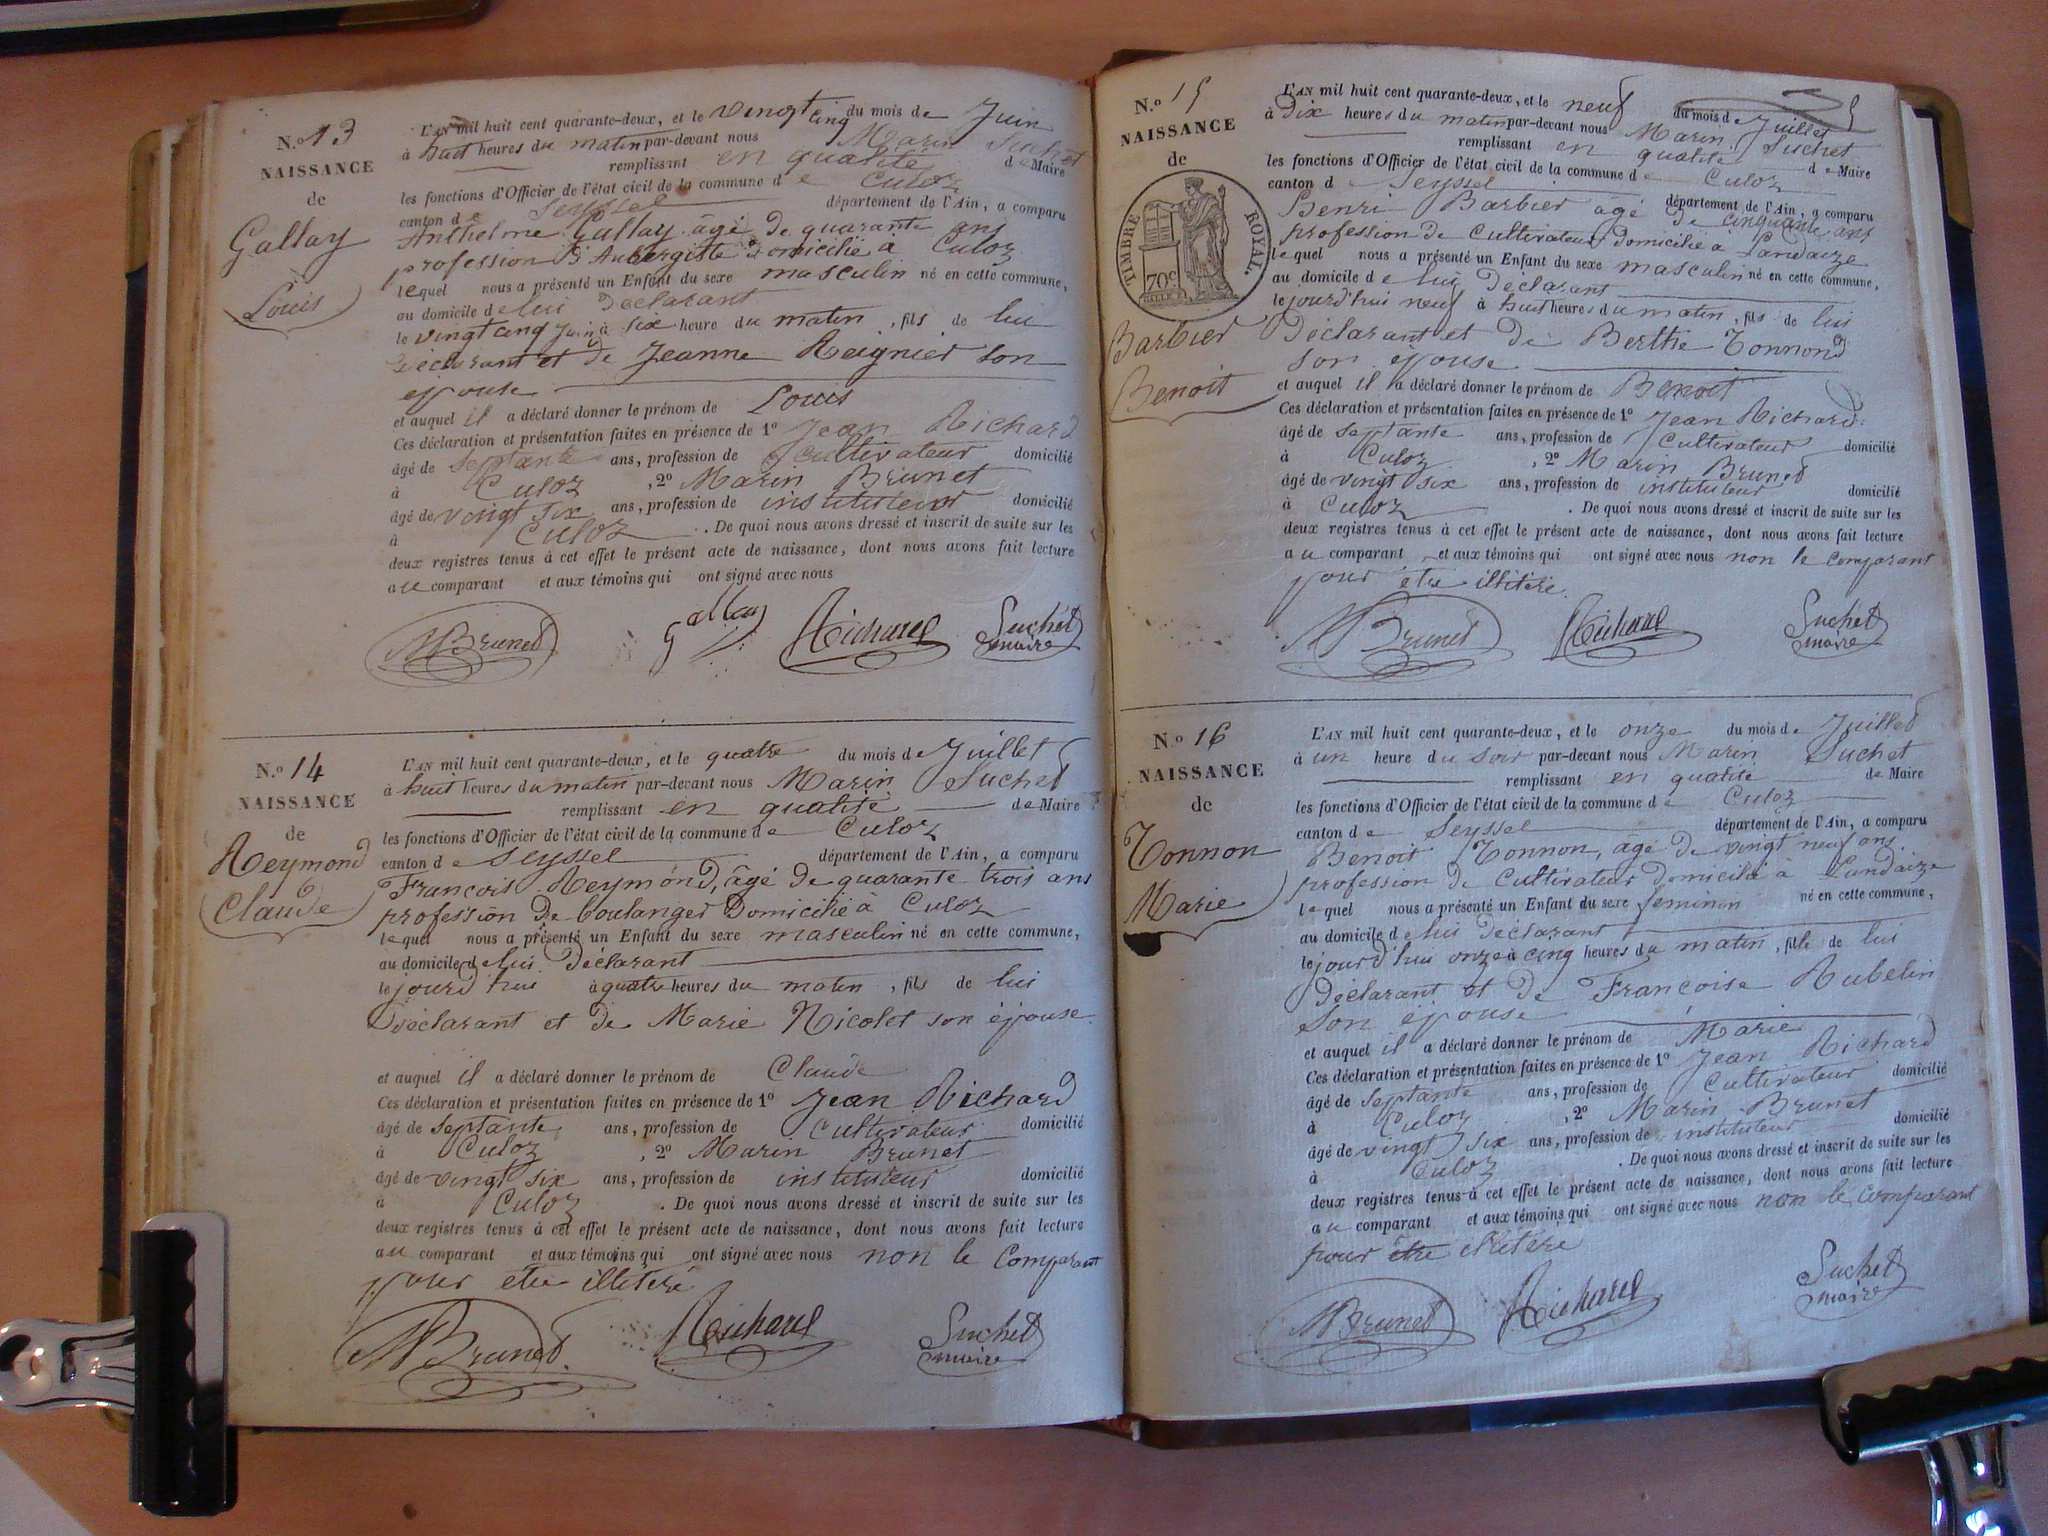 N.o 13
NAISSANCE
de
Gallay
Louis
L'AN mil huit cent quarante-deux, et le vingt cinq du mois de Juin
à huit heures du matin par-devant nous Marin Suchet
remplissant en qualité de Maire
les fonctions d'Officier de l'état civil de la commune de Culoz
canton de Seyssel département de l'Ain, a comparu
Anthelme Gallay âgé de quarante ans
profession d'Aubergiste domicilié a Culoz
lequel nous a présenté un Enfant du sexe masculin né en cette commune,
au domicile de lui déclarant
le vingt cinq Juin à six heure du matin, fils de lui
déclarant et de Jeanne Reignier son
epouse
et auquel il a déclaré donner le prénom de Louis
Ces déclaration et présentation faites en présence de 1o Jean Richard
âgé de septante ans, profession de cultivateur domicilié
à Culoz, 2o Marin Brunet
âgé de vingt six ans, profession de instituteur domicilié
à Culoz. De quoi nous avons dressé et inscrit de suite sur les
deux registres tenus à cet effet le présent acte de naissance, dont nous avons fait lecture
au comparant et aux témoins qui ont signé avec nous
MBrunet Gallay Richard Suchet
maire
N.o 14
NAISSANCE
de
Reymond
Claude
L'AN mil huit cent quarante-deux, et le quatre du mois de Juillet
à huit heures du matin par-devant nous Marin Suchet
remplissant en qualité de Maire
les fonctions d'Officier de l'état civil de la commune de Culoz
canton de Seyssel département de l'Ain, a comparu
Francois Reymond, âgé de quarante trois ans
profession de boulanger domicilié à Culoz
lequel nous a présenté un Enfant du sexe masculin né en cette commune,
au domicile de lui déclarant
le jourd'hui à quatre heures du matin, fils de lui
déclarant et de Marie Nicolet son épouse
et auquel il a déclaré donner le prénom de Claude
Ces déclaration et présentation faites en présence de 1o Jean Richard
âgé de septante ans, profession de cultivateur domicilié
à Culoz, 2o Marin Brunet
âgé de vingt six ans, profession de instituteur domicilié
à Culoz. De quoi nous avons dressé et inscrit de suite sur les
deux registres tenus à cet effet le présent acte de naissance, dont nous avons fait lecture
au comparant et aux témoins qui ont signé avec nous non le comparant
pour etre illitéré
MBrunet Richard Suchet
maire
N.o 15
NAISSANCE
de
TIMBRE ROYAL.
70c
Barbier
Benoit
L'AN mil huit cent quarante-deux, et le neuf du mois de Juillet
à Dix heures du matin par-devant nous Marin Suchet
remplissant en qualité de Maire
les fonctions d'Officier de l'état civil de la commune de Culoz
canton de Seyssel département de l'Ain, a comparu
Henri Barbier âgé de cinquante ans
profession de Cultivateur domicilié a Landaize
lequel nous a présenté un Enfant du sexe masculin né en cette commune,
au domicile de lui déclarant
le jourd'hui neuf à huit heures du matin, fils de lui
Déclarant et de Berthe Tonnond
son epouse
et auquel il a déclaré donner le prénom de Benoit
Ces déclaration et présentation faites en présence de 1o Jean Richard
âgé de septante ans, profession de cultivateur domicilié
à Culoz, 2o Marin Brunet
âgé de vingt six ans, profession de instituteur domicilié
à Culoz. De quoi nous avons dressé et inscrit de suite sur les
deux registres tenus à cet effet le présent acte de naissance, dont nous avons fait lecture
au comparant et aux témoins qui ont signé avec nous non le comparant
pour être illitéré.
MBrunet Richard Suchet
maire
N.o 16
NAISSANCE
de
Tonnon
Marie
L'AN mil huit cent quarante-deux, et le onze du mois de Juillet
à un heure du soir par-devant nous Marin Suchet
remplissant en qualité de Maire
les fonctions d'Officier de l'état civil de la commune de Culoz
canton de Seyssel département de l'Ain, a comparu
Benoit Tonnon, âgé de vingt neuf ans
profession de cultivateur domicilié à Landaize
lequel nous a présenté un Enfant du sexe feminin né en cette commune,
au domicile de lui déclarant
le jourd'hui onze à cinq heures du matin, fille de lui
déclarant et de Françoise Rubelin
son épouse
et auquel il a déclaré donner le prénom de Marie
Ces déclaration et présentation faites en présence de 1o Jean Richard
âgé de septante ans, profession de cultivateur domicilié
à Culoz, 2o Marin Brunet
âgé de vingt six ans, profession de instituteur domicilié
à Culoz. De quoi nous avons dressé et inscrit de suite sur les
deux registres tenus à cet effet le présent acte de naissance, dont nous avons fait lecture
au comparant et aux témoins qui ont signé avec nous non le comparant
pour être illitéré
MBrunet Richard Suchet
maire